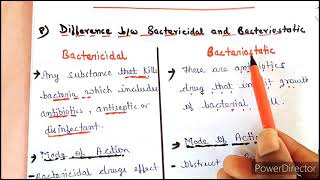 8) Difference b/w Bactericidal and Bacteriostatic
Bactericidal
→ Any substance that kills
bacteria, which includes
antibiotics, antiseptic or
disinfectant.
→ Mode of Action
→ Bactericidal drugs effect
Bacteriostatic
→ These are antibiotics
drug that growth
of bacterial
→ Mode of Acti
→ Obstruct
PowerDirector